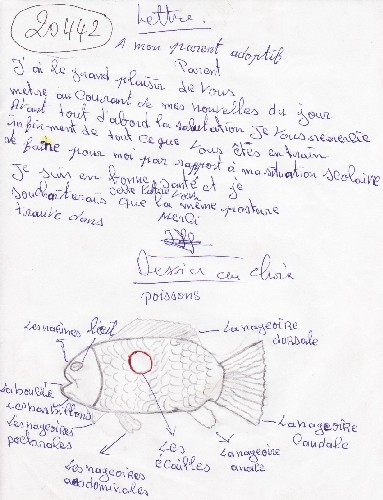 20442
Lettre.
A mon parent adoptif
Parent
J'ai le grand plaisir de vous
metre au courant de mes nouvelles du jour
Avant tout d'abord la salutation je vous remercie
infiniment de tout ce que vous êtes en train
de faire pour moi par rapport à ma situation scolaire
Je suis en bonne santé et je
souhaiterais que la même posture
cette lettre vous
trouve dans
Merci
Dessin au choix
poissons
Les narines
l'œil
La nageoire
dorsale
La bouche
Les barbillons
Les nageoires
pectorales
Les nageoires
abdominales
Les
écailles
La nageoire
anale
La nageoire
caudale